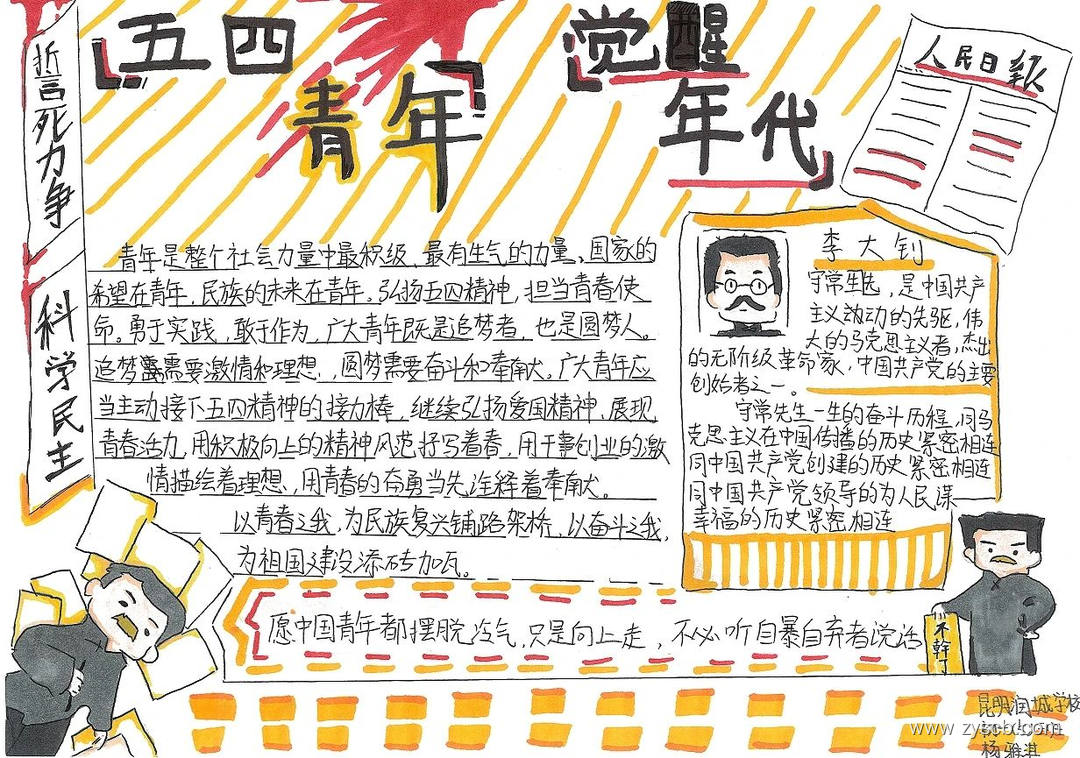 五四
青年
觉醒
年代
人民日報
誓死力争
科学民主
青年是整个社会力量中最积级、最有生气的力量、国家的
希望在青年,民族的未来在青年。弘扬五四精神,担当青春使
命。勇于实践,敢于作为,广大青年既是追梦者,也是圆梦人。
追梦需要激情和理想,圆梦需要奋斗和奉献。广大青年应
当主动接下五四精神的接力棒,继续弘扬爱国精神、展现
青春活力,用积极向上的精神风范抒写着春,用干事创业的激
情描绘着理想,用青春的奋勇当先诠释着奉献。
以青春之我,为民族复兴铺路架桥,以奋斗之我,
为祖国建设添砖加瓦。
李大钊
守常先生,是中国共产
主义激动的先驱,伟
大的马克思主义者,杰出
的无阶级革命家,中国共产党的主要
创始者之一。
守常先生一生的奋斗历程,同马
克思主义在中国传播的历史紧密相连
同中国共产党创建的历史紧密相连
同中国共产党领导的为人民谋
幸福的历史紧密相连
愿中国青年都摆脱冷气,只是向上走,不必听自暴自弃者说话
不幹了
昆明润城学校
www.zyscbl.com
杨雅淇